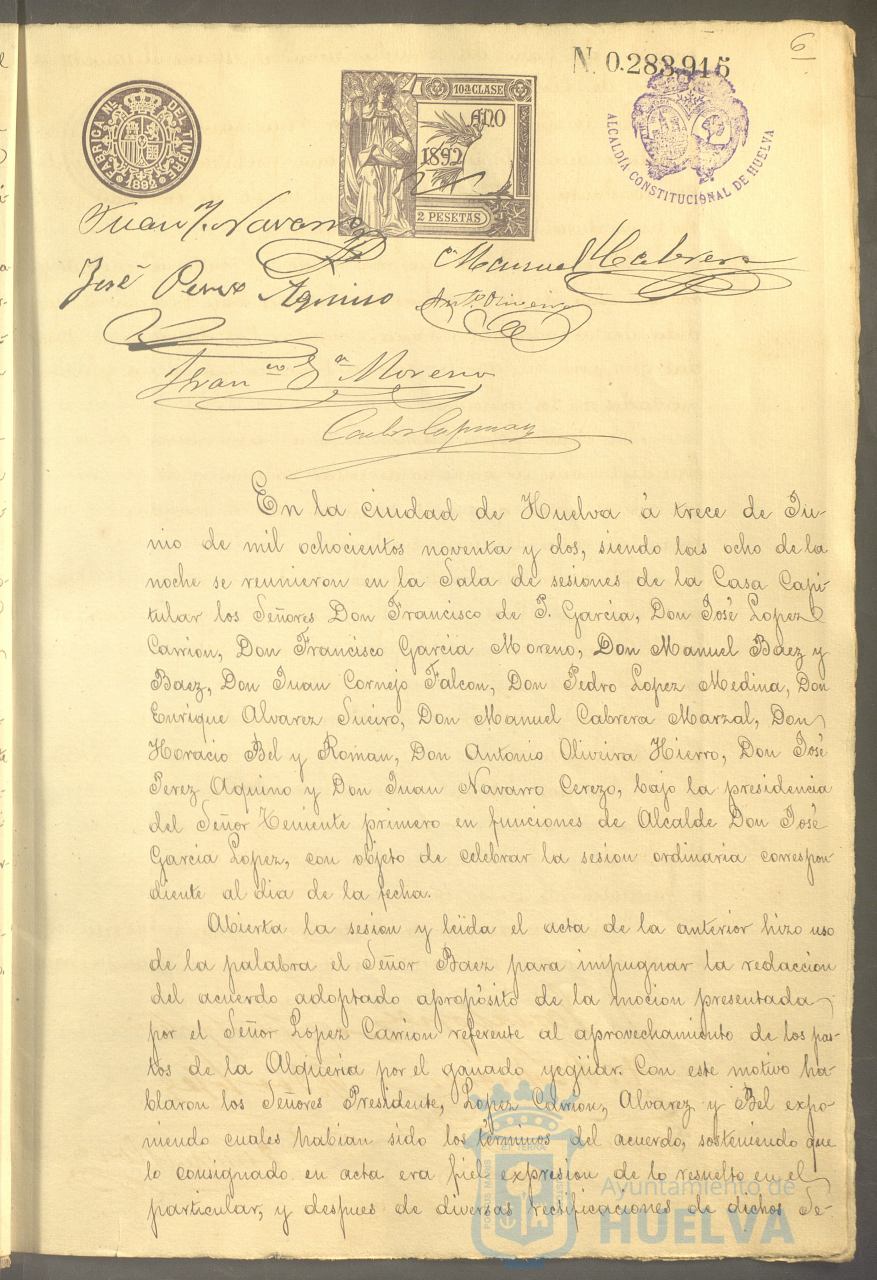 6
N. 0.283,915
FABRICA NL. DEL TIMBRE
1892
10ª CLASE
AÑO
1892
2 PESETAS
ALCALDÍA CONSTITUCIONAL DE HUELVA
Juan J. Navarro
Manuel Cabrera
José Perez Aquino
Antº. Oliveira
Franco. Ga. Moreno
En la ciudad de Huelva á trece de Ju-
nio de mil ochocientos noventa y dos, siendo las ocho de la
noche se reunieron en la Sala de sesiones de la Casa Capi-
tular los Señores Don Francisco de P. Garcia, Don José Lopez
Carrion, Don Francisco Garcia Moreno, Don Manuel Baez y
Baez, Don Juan Cornejo Falcon, Don Pedro Lopez Medina, Don
Enrique Alvarez Sueiro, Don Manuel Cabrera Marzal, Don
Horacio Bel y Roman, Don Antonio Oliveira Hierro, Don José
Perez Aquino y Don Juan Navarro Cerezo, bajo la presidencia
del Señor Teniente primero en funciones de Alcalde Don José
Garcia Lopez, con objeto de celebrar la sesion ordinaria correspon-
diente al dia de la fecha.
Abierta la sesion y leida el acta de la anterior hizo uso
de la palabra el Señor Baez para impugnar la redaccion
del acuerdo adoptado apropósito de la mocion presentada
por el Señor Lopez Carrion referente al aprovechamiento de los pas-
tos de la Alqueria por el ganado yegüar. Con este motivo ha-
blaron los Señores Presidente, Lopez Carrion, Alvarez y Bel expo-
niendo cuales habian sido los términos del acuerdo, sosteniendo que
lo consignado en acta era fiel expresion de lo resuelto en el
particular, y despues de diversas rectificaciones de dichos Se-
Ayuntamiento de
HUELVA